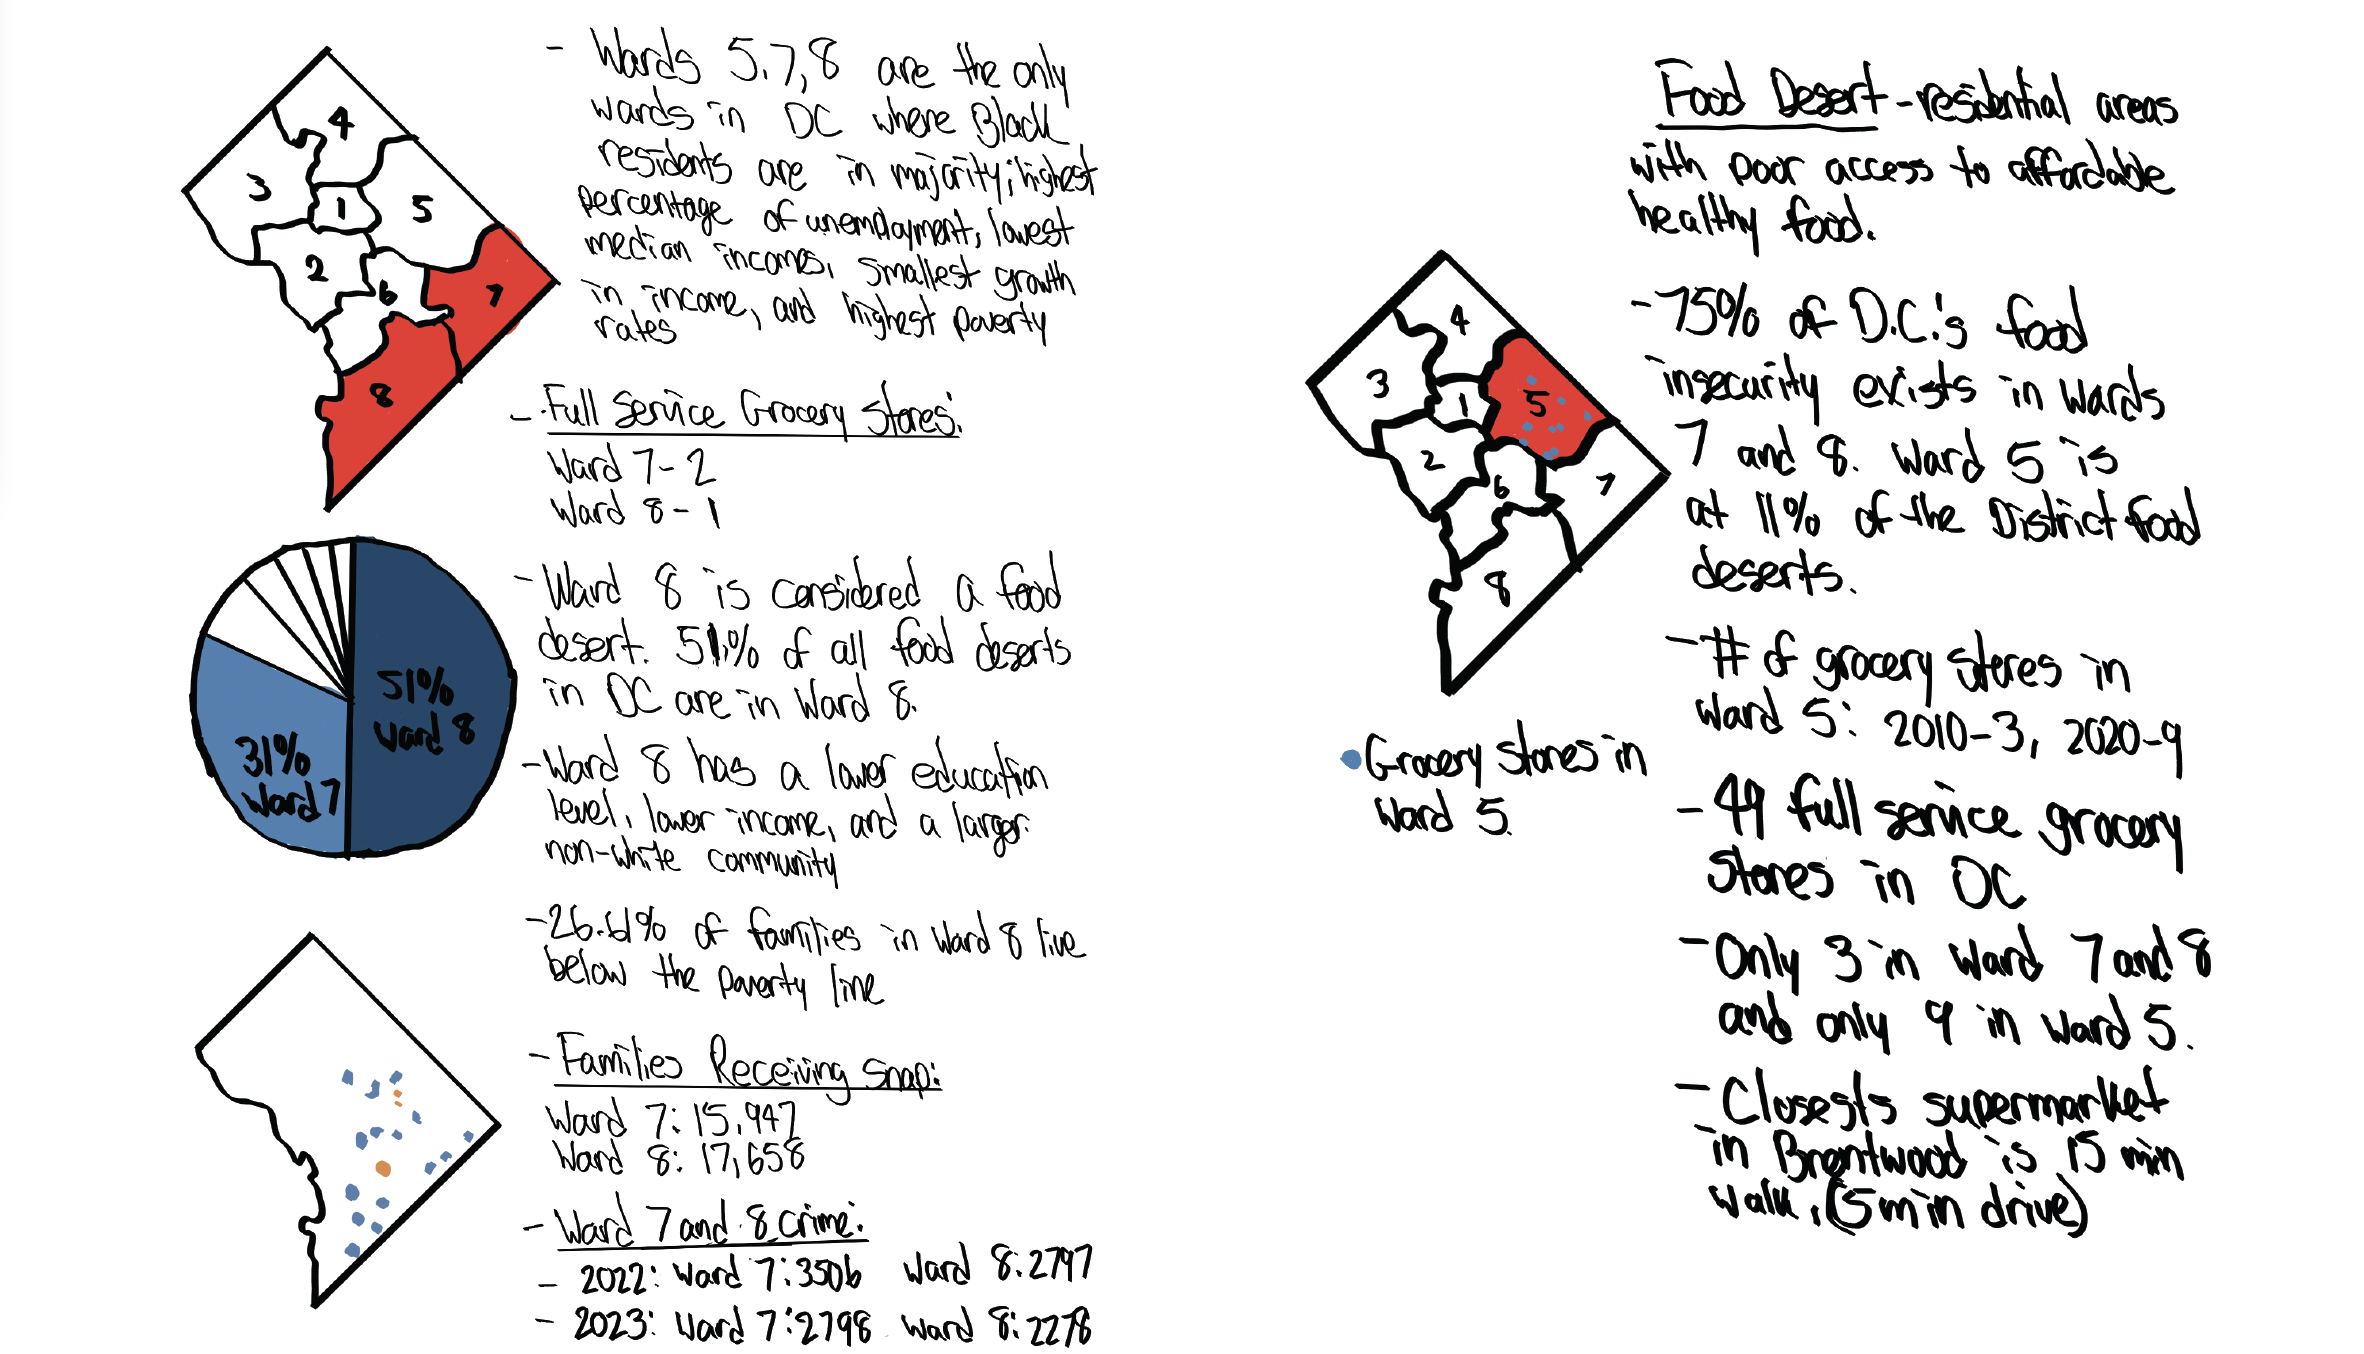 4
3
1
5
2
6
7
8
- Wards 5,7,8 are the only
wards in DC where Black
residents are in majority; highest
percentage of unemployment, lowest
median incomes, smallest growth
in income, and highest poverty
rates
- Full Service Grocery Stores:
Ward 7- 2
Ward 8- 1
51%
Ward 8
31%
Ward 7
- Ward 8 is considered a food
desert. 51% of all food deserts
in DC are in Ward 8.
- Ward 8 has a lower education
level, lower income, and a larger
non-white community
- 26.61% of families in Ward 8 live
below the poverty line
- Families Receiving Snap:
Ward 7: 15,947
Ward 8: 17,658
- Ward 7 and 8 Crime:
- 2022: Ward 7: 3506 Ward 8: 2797
- 2023: Ward 7: 2798 Ward 8: 2278
Food Desert - residential areas
with poor access to affordable
healthy food.
4
3
1
5
2
6
7
8
Grocery stores in
Ward 5
- 75% of D.C.'s food
insecurity exists in Wards
7 and 8. Ward 5 is
at 11% of the District food
deserts.
- # of grocery stores in
Ward 5: 2010-3, 2020-9
- 49 full service grocery
stores in DC
- Only 3 in Ward 7 and 8
and only 9 in Ward 5.
- Closests supermarket
in Brentwood is 15 min
walk, (5 min drive)